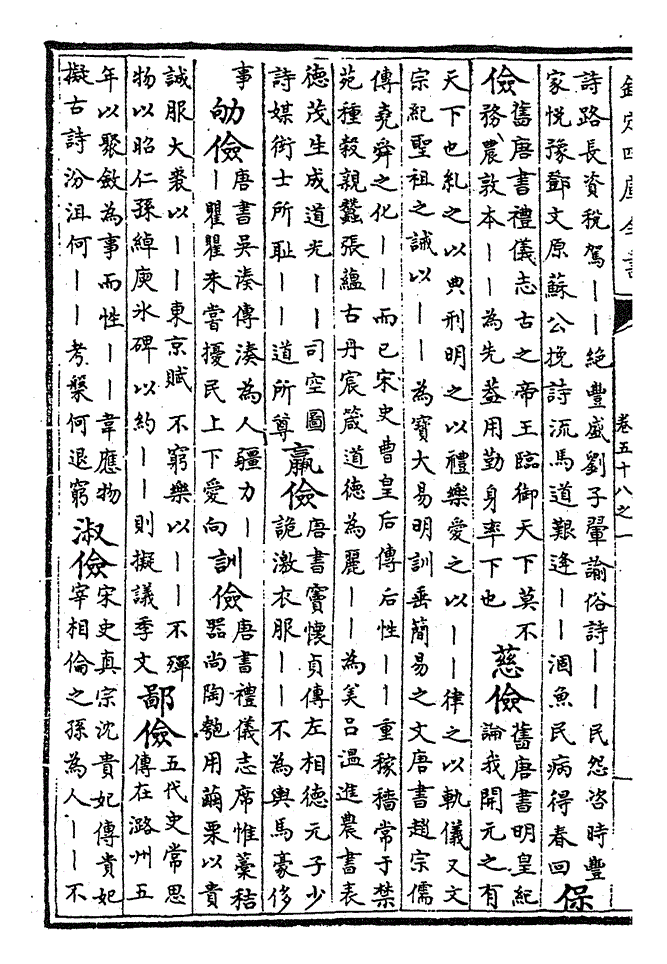 欽定四庫全書
卷五十八之一
詩路長資稅駕丨丨絶豐盛劉子翬諭俗詩丨丨民怨咨時豐
家悅豫鄧文原蘇公挽詩流馬道艱逢丨丨涸魚民病得春回
保
儉
舊唐書禮儀志古之帝王臨御天下莫不
務農敦本丨丨為先葢用勤身率下也
慈儉
舊唐書明皇紀
論我開元之有
天下也糺之以典刑明之以禮樂愛之以丨丨律之以軌儀又文
宗紀聖祖之誡以丨丨為寶大易明訓垂簡易之文唐書趙宗儒
傳堯舜之化丨丨而已宋史曹皇后傳后性丨丨重稼穡常于禁
苑種穀親蠶張蘊古丹扆箴道德為麗丨丨為美呂温進農書表
德茂生成道光丨丨司空圖
詩媒衒士所恥丨丨道所尊
羸儉
唐書竇懷貞傳左相德元子少
詭激衣服丨丨不為輿馬豪侈
事
劬儉
唐書吳湊傳湊為人彊力丨
丨瞿瞿未嘗擾民上下愛向
訓儉
唐書禮儀志席惟藁秸
器尚陶匏用繭栗以貴
誠服大裘以丨丨東京賦不窮樂以丨丨不殫
物以昭仁孫綽庾氷碑以約丨丨則擬議季文
鄙儉
五代史常思
傳在潞州五
年以聚斂為事而性丨丨韋應物
擬古詩汾沮何丨丨考槃何退窮
淑儉
宋史真宗沈貴妃傳貴妃
宰相倫之孫為人丨丨不